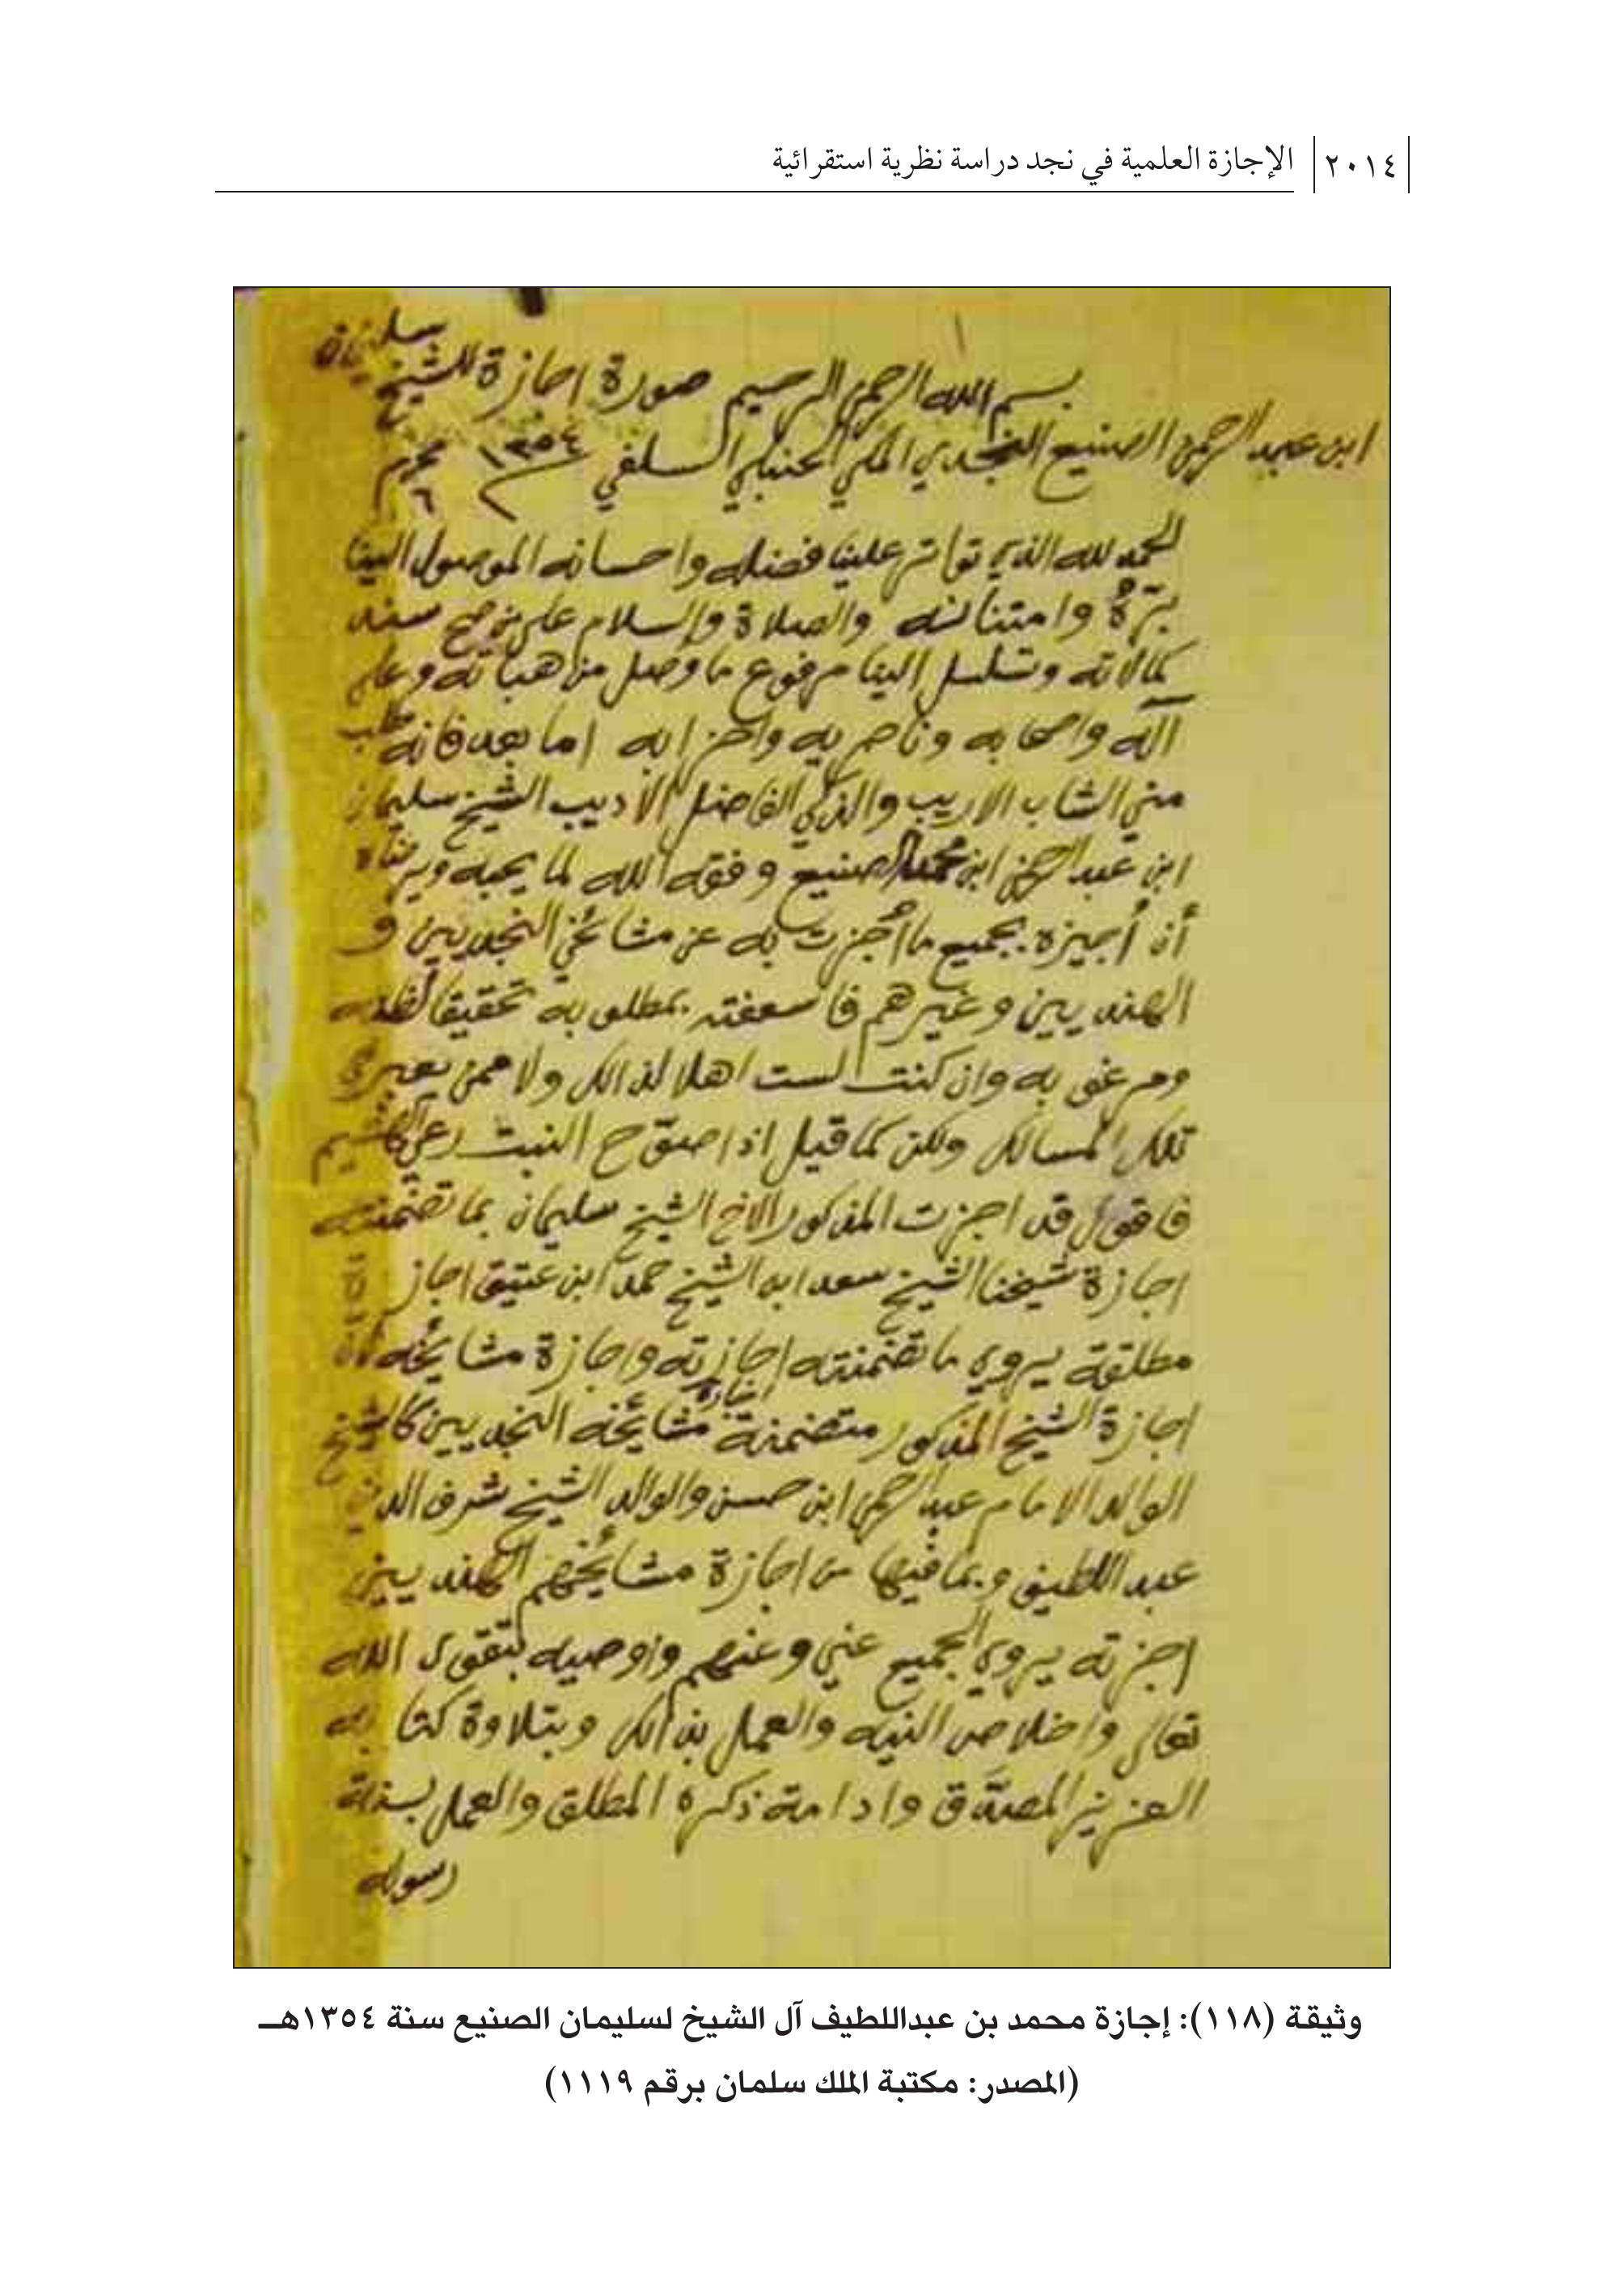 ٢٠١٤ الإجازة العلمية في نجد دراسة نظرية استقرائية
بسم الله الرحمن الرحيم صورة اجازة للشيخ سليمان
ابن عبد الرحمن الصنيع النجدي المكي الحنبلي السلفي ١٣٥٤ محرم ٦
الحمد لله الذي تواتر علينا فضله واحسانه الموصول الينا
برّهُ وامتنانه والصلاة والسلام على من صح سند
كمالاته وتسلسل الينا مرفوع ما وصل من هباته وعلى
آله واصحابه وناصريه واحزابه اما بعد فانه طلب
مني الشاب الاريب والذكي الفاضل الأديب الشيخ سليمان
ابن عبد الرحمن ابن محمد الصنيع وفقه الله لما يحبه ويرضاه
أن أجيزه بجميع ما أُجزت به عن مشائخي النجديين و
الهنديين وغيرهم فأسعفته بمطلوبه تحقيقا لظنه
ومرغوبه وان كنت لست اهلا لذالك ولا ممن يعبر في
تلك المسالك ولكن كما قيل اذا صوّح النبت رعي الهشيم
فاقول قد اجزت المذكور الاخ الشيخ سليمان بما تضمنته
اجازة شيخنا الشيخ سعد ابن الشيخ حمد ابن عتيق اجازة
مطلقة يروي ما تضمنته اجازته واجازة مشايخه لأن
اجازة الشيخ المذكور متضمنة اجازة مشائخه النجديين كالشيخ
الوالد الامام عبد الرحمن ابن حسن والوالد الشيخ شرف الدين
عبد اللطيف وبما فيها من اجازة مشايخهم الهنديين
اجزته يروي الجميع عني وعنهم واوصيه بتقوى الله
تعالى واخلاص النيه والعمل بذالك وبتلاوة كتابه
العزيز المصدّق وادامة ذكره المطلق والعمل بسنة
رسوله
وثيقة (١١٨): إجازة محمد بن عبداللطيف آل الشيخ لسليمان الصنيع سنة ١٣٥٤هـ
(المصدر: مكتبة الملك سلمان برقم ١١١٩)